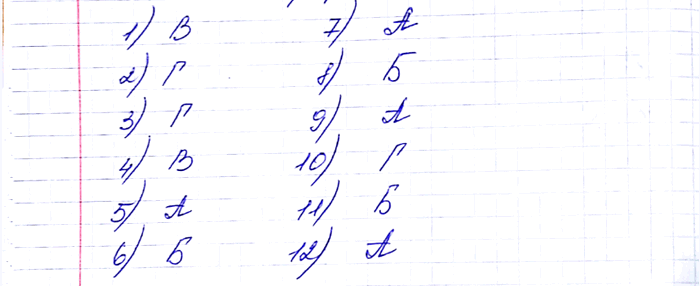 1) В
2) Г
3) Г
4) В
5) А
6) Б
7) А
8) Б
9) А
10) Г
11) Б
12) А